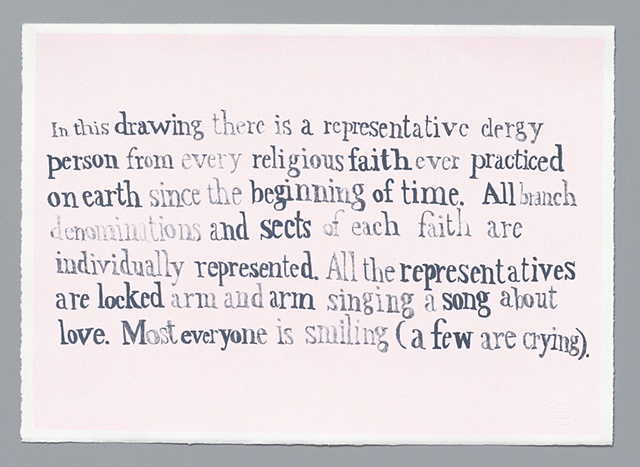 In this drawing there is a representative clergy
person from every religious faith ever practiced
on earth since the beginning of time. All branch
denominations and sects of each faith are
individually represented. All the representatives
are locked arm and arm singing a song about
love. Most everyone is smiling (a few are crying).